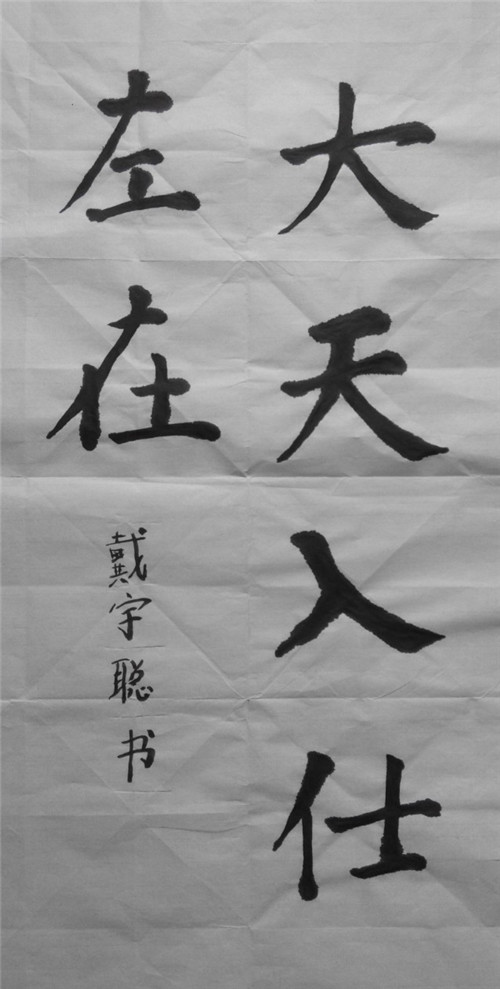 大天入仕
左在
戴宇聪书